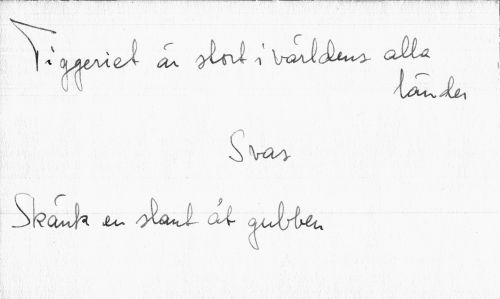 Tiggeriet är stort i världens alla
länder
Svar
Skänk en slant åt gubben